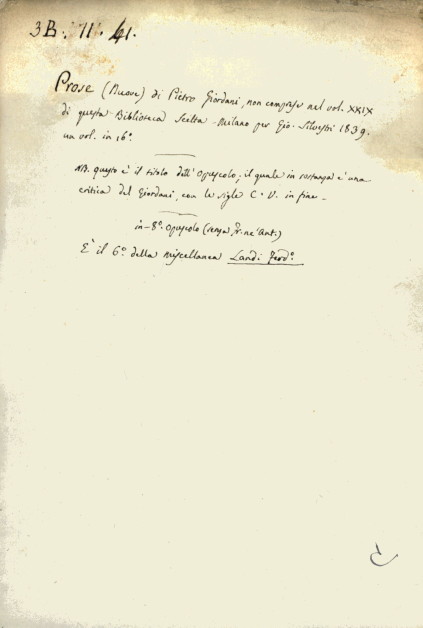 3B. II. 41.
Prose (Nuove) di Pietro Giordani, non comprese nel vol. XXIX
di questa Biblioteca Scelta - Milano per Gio. Silvestri 1839.
un vol. in 16º.
NB. questo è il titolo dell'Opuscolo; il quale in sostanza è una
critica del Giordani, con le sigle C. V. in fine.
in-8º. opuscolo (senza fr. ne' ant.)
È il 6º. della Miscellanea Landi Ferdº.